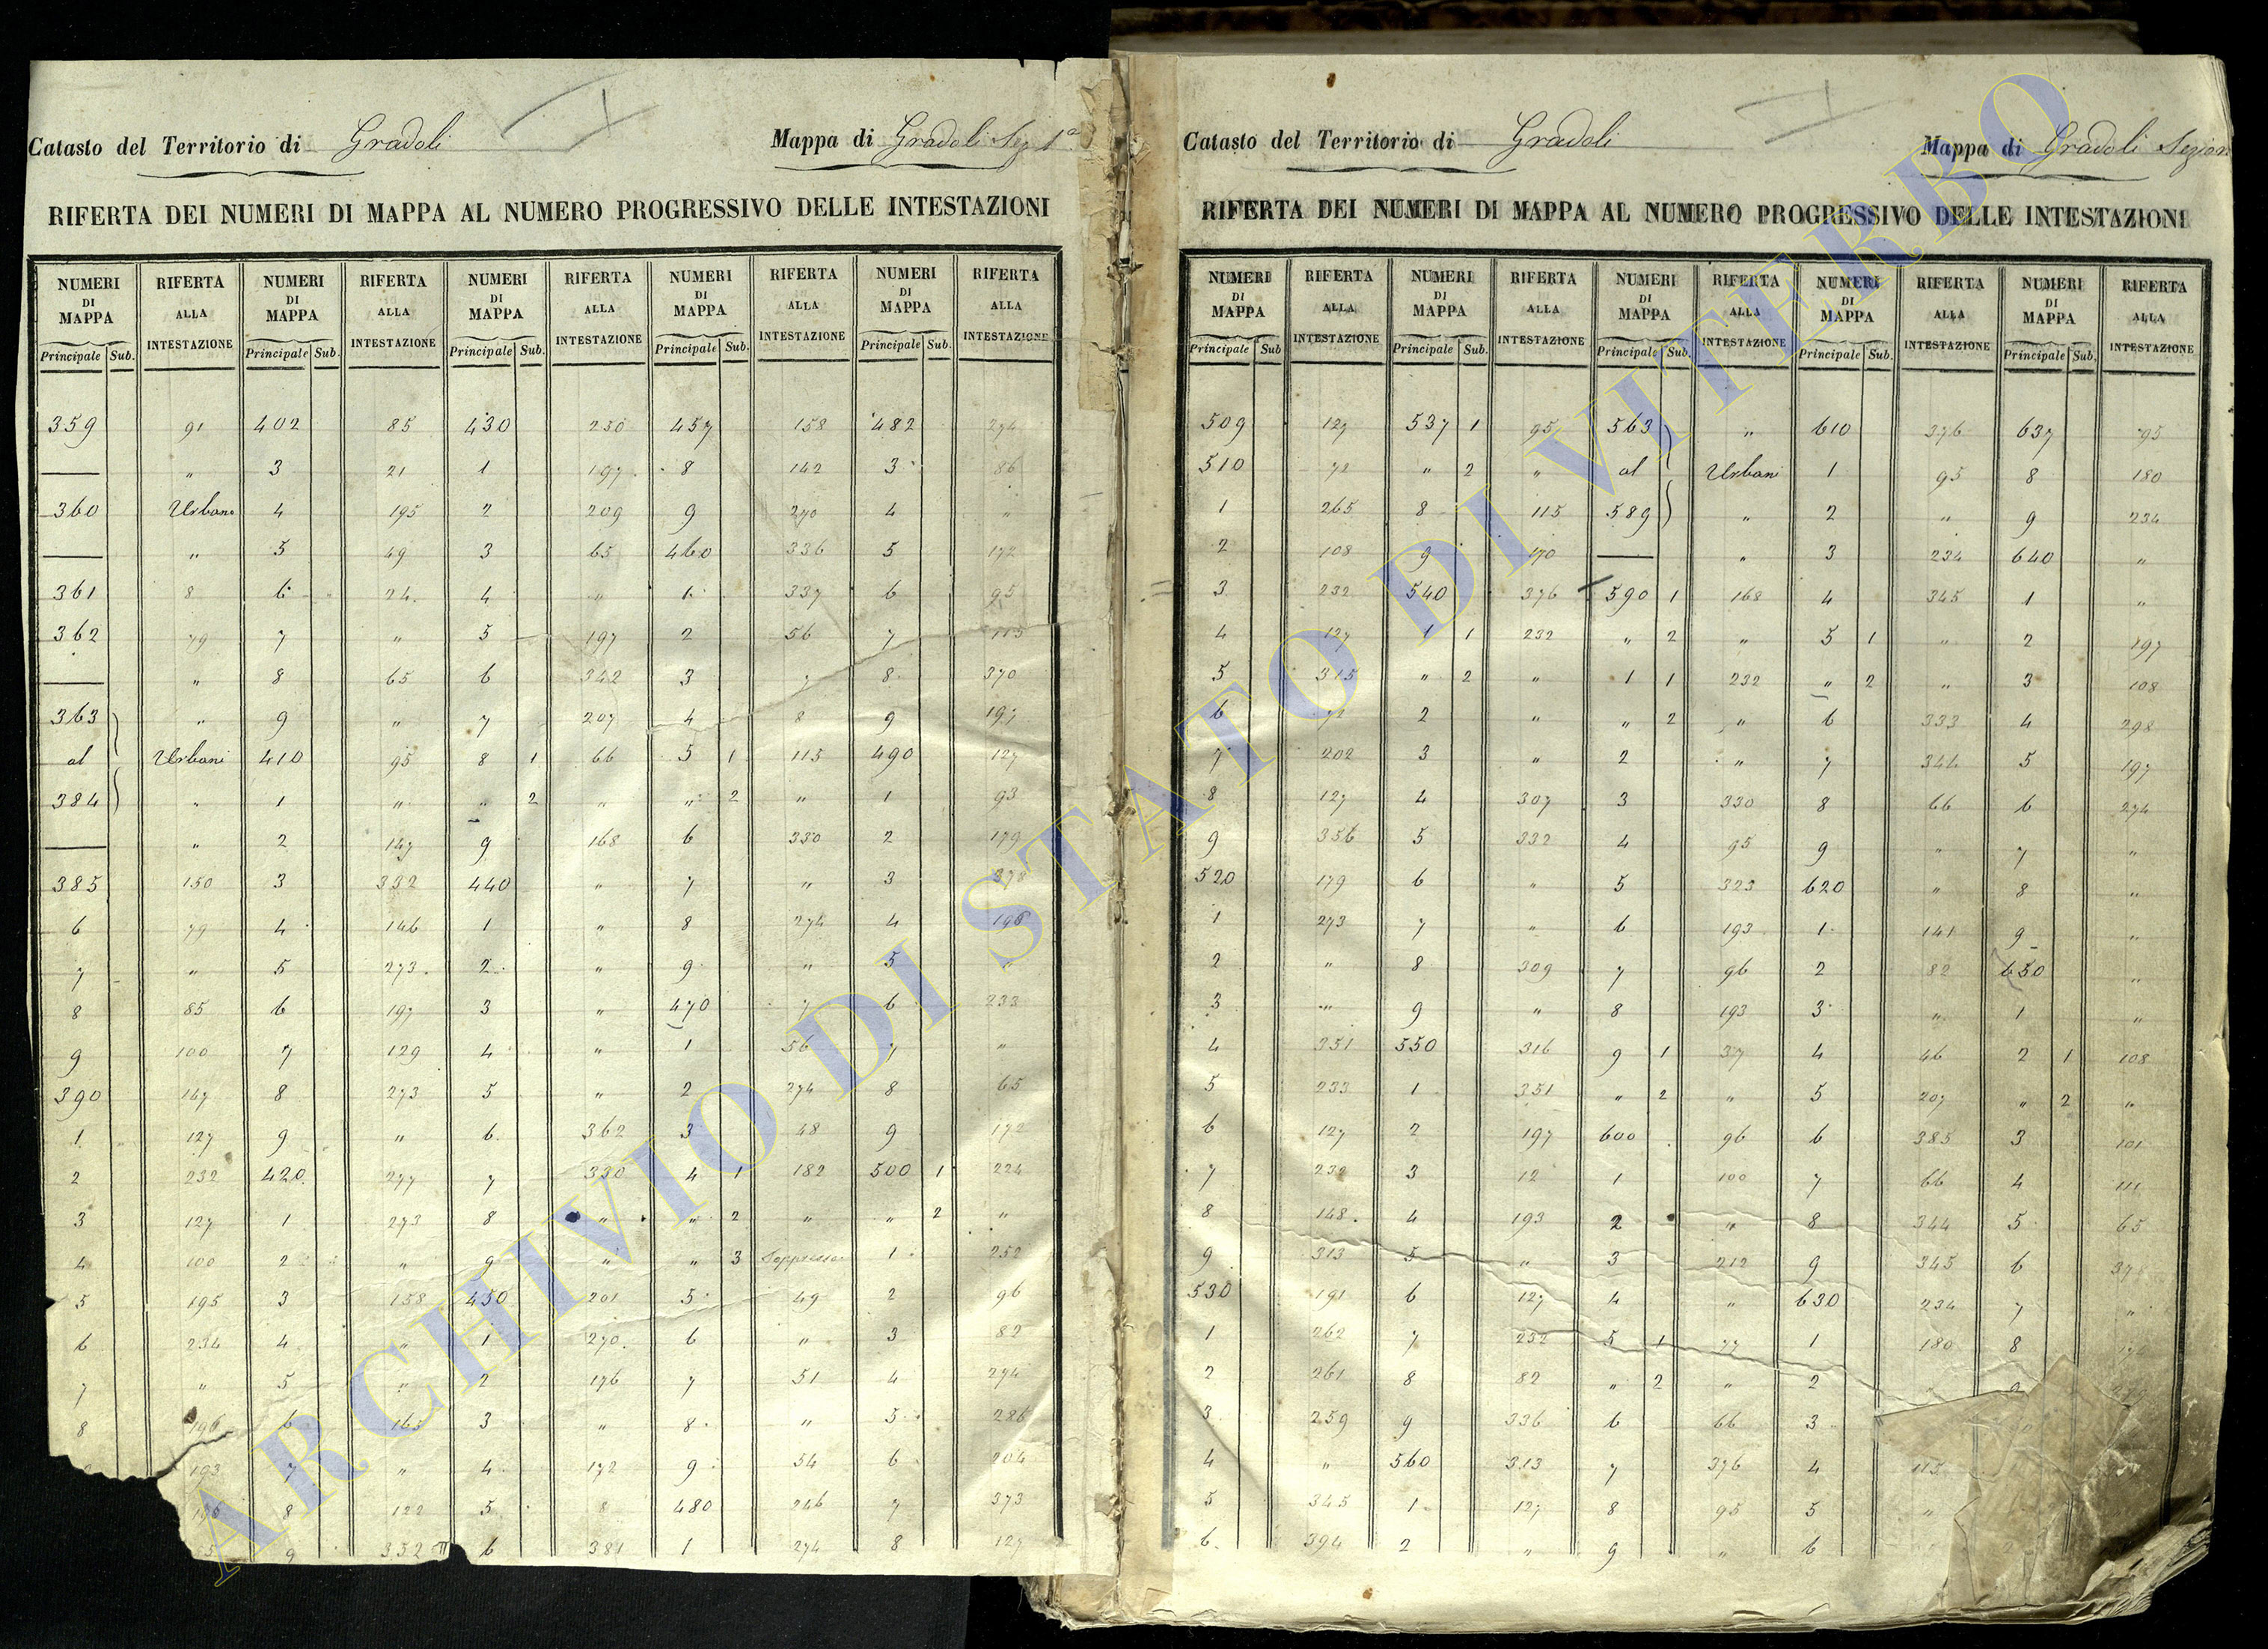 Catasto del Territorio di Gradoli Mappa di Gradoli Sez 1ª
RIFERTA DEI NUMERI DI MAPPA AL NUMERO PROGRESSIVO DELLE INTESTAZIONI
NUMERI DI MAPPA RIFERTA ALLA INTESTAZIONE NUMERI DI MAPPA RIFERTA ALLA INTESTAZIONE NUMERI DI MAPPA RIFERTA ALLA INTESTAZIONE NUMERI DI MAPPA RIFERTA ALLA INTESTAZIONE NUMERI DI MAPPA RIFERTA ALLA INTESTAZIONE
Principale Sub. Principale Sub. Principale Sub. Principale Sub. Principale Sub.
359 91 402 85 430 230 457 158 482 274
— " 3 21 1 197 8 142 3 86
360 Urbano 4 195 2 209 9 270 4 "
— " 5 49 3 65 460 336 5 172
361 8 6 24 4 " 1 337 6 95
362 79 7 " 5 197 2 56 7 115
— " 8 65 6 342 3 7 8 370
363 " 9 " 7 207 4 8 9 197
al Urbani 410 95 8 1 66 5 1 115 490 127
384 " 1 " " 2 " " 2 " 1 93
— " 2 147 9 168 6 330 2 179
385 150 3 332 440 " 7 " 3 378
6 79 4 146 1 " 8 274 4 196
7 " 5 273 2 " 9 " 5 "
8 85 6 197 3 " 470 7 6 233
9 100 7 129 4 " 1 56 7 "
390 147 8 273 5 " 2 274 8 65
1 127 9 " 6 362 3 48 9 172
2 232 420 277 7 330 4 1 182 500 1 224
3 127 1 273 8 " " 2 " " 2 "
4 100 2 " 9 " " 3 Soppresso 1 252
5 195 3 158 450 201 5 49 2 96
6 234 4 " 1 270 6 " 3 82
7 " 5 " 2 176 7 51 4 274
8 196 6 163 3 " 8 " 5 286
193 7 " 4 172 9 54 6 204
196 8 122 5 8 480 246 7 373
9 352 6 381 1 274 8 127
Catasto del Territorio di Gradoli Mappa di Gradoli Sezion
RIFERTA DEI NUMERI DI MAPPA AL NUMERO PROGRESSIVO DELLE INTESTAZIONI
NUMERI DI MAPPA RIFERTA ALLA INTESTAZIONE NUMERI DI MAPPA RIFERTA ALLA INTESTAZIONE NUMERI DI MAPPA RIFERTA ALLA INTESTAZIONE NUMERI DI MAPPA RIFERTA ALLA INTESTAZIONE NUMERI DI MAPPA RIFERTA ALLA INTESTAZIONE
Principale Sub Principale Sub. Principale Sub. Principale Sub. Principale Sub.
509 127 537 1 95 563 " 610 376 637 95
510 72 " 2 " al Urbani 1 95 8 180
1 265 8 115 589 " 2 " 9 234
2 108 9 170 — " 3 234 640 "
3 232 540 376 590 1 168 4 345 1 "
4 127 1 1 232 " 2 " 5 1 " 2 197
5 315 " 2 " 1 1 232 " 2 " 3 108
6 72 2 " " 2 " 6 333 4 298
7 202 3 " 2 " 7 344 5 197
8 127 4 307 3 330 8 66 6 274
9 356 5 332 4 95 9 " 7 "
520 179 6 " 5 323 620 " 8 "
1 273 7 " 6 193 1 141 9 "
2 " 8 309 7 96 2 82 650 "
3 " 9 " 8 193 3 " 1 "
4 351 550 316 9 1 37 4 46 2 1 108
5 233 1 351 " 2 " 5 207 " 2 "
6 127 2 197 600 96 6 385 3 101
7 232 3 12 1 100 7 66 4 111
8 148 4 193 2 " 8 344 5 65
9 313 5 " 3 212 9 345 6
530 191 6 127 4 " 630 234 7 "
1 262 7 232 5 1 77 1 180 8
2 261 8 82 " 2 " 2 "
3 259 9 336 6 66 3
4 " 560 313 7 376 4 115
5 345 1 127 8 95 5 "
6 394 2 " 9 " 6
ARCHIVIO DI STATO DI VITERBO